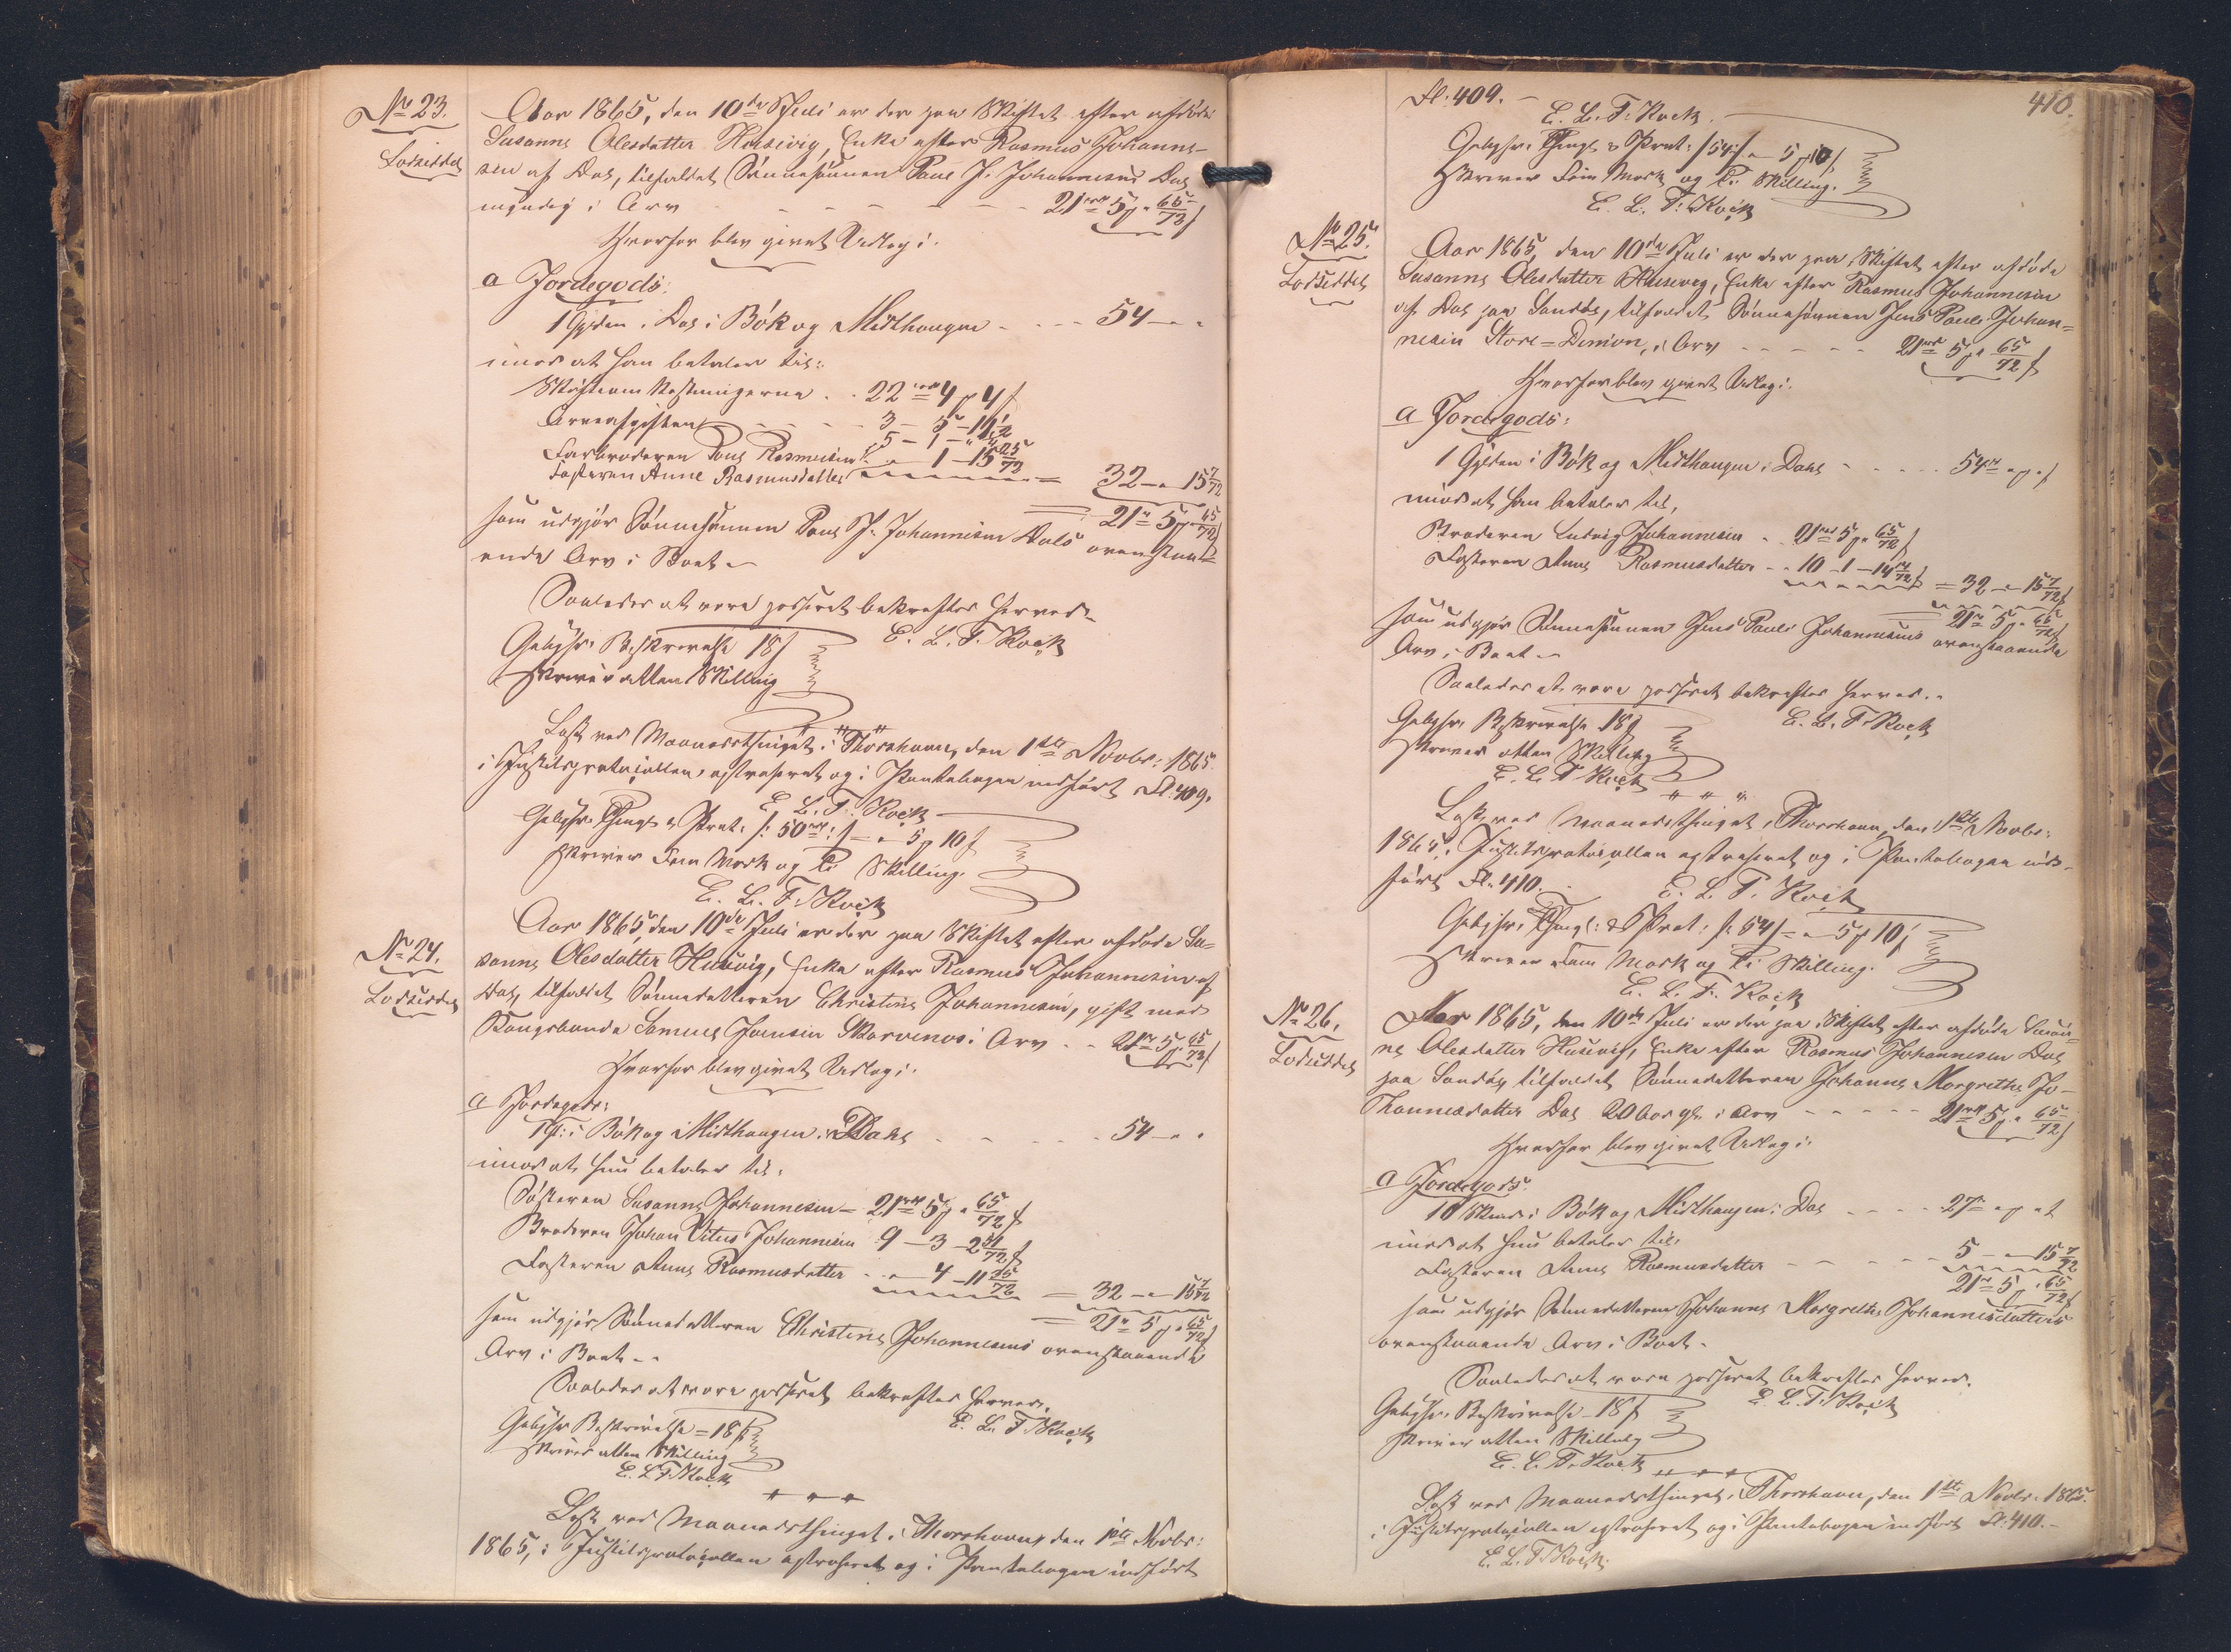 No 23.
Lodseddel
Aar 1865, den 10de Juli er der paa Skiftet efter afdøde
Susanne Olesdatter Husevig, Enke efter Rasmus Johanne-
sen af Dal, tilfaldet Sønnesønnen Poul J. Johannesen Dal
myndig i Arv - - - - - 21rd 5 # " 65/72 ß
Hvorfor blev givet Udlæg i.
a Jordegods:
1 Gylden i Dal i Bók og Midthaugen - - - 54 - " "
imod at han betaler til:
Skifteomkostningerne . . 22rd 4 # 4 ß
Arveafgiften - - - - 3 - 5 - 11 1/2
Farbroderen Poul Rasmusen 5 - 1 - "
Fasteren Anne Rasmusdatter " 1 - 15 25/72
= 32 - " 15 7/72
21rd 5 # " 65/72 ß
som udgjør Sønnesønnen Poul J. Johannesen Dals ovenstaa-
ende Arv i Boet.
Saaledes at være passeret bekræftes herved.
E. L. T. Kock
Gebyhr. Beskrivelse 18 ß
skriver atten Skilling
Læst ved Maanedsthinget i Thorshavn, den 1ste Novbr: 1865.
i Justitsprotocollen extraheret og i Pantebogen indført Fl. 409.
E. L. T. Kock
Gebyhr. Thingl. & Prot. /: 50rd :/ - " 5 # 10 ß
skriver Fem Mark og Ti Skilling.
E. L. T. Kock
No 24.
Lodseddel
Aar 1865, den 10de Juli er der paa Skiftet efter afdøde Su-
sanne Olesdatter Husevig, Enke efter Rasmus Johannesen af
Dal, tilfaldet Sønnedatteren Christine Johannesen, gift med
Kongsbonde Samuel Joensen Skarvenes i Arv . . 21rd 5 # " 65/72 ß
Hvorfor blev givet Udlæg i.
a Jordegods:
1 Gl: i Bók og Midthaugen i Dahl - - - - 54 - " "
imod at hun betaler til.
Søsteren Susanne Johannesen = 21rd 5 # " 65/72 ß
Broderen Johan Vitus Johannesen 9 - 3 - 2 51/72 ß
Fasteren Anne Rasmusdatter - " 4 - 11 35/72
= 32 - " 15 7/72
= 21rd 5 # " 65/72 ß
som udgjør Sønnedatteren Christine Johannesens ovenstaaende
Arv i Boet. -
Saaledes at være passeret bekræftes herved.
E. L. T. Kock
Gebyhr Beskrivelse = 18 ß
skriver atten Skilling
E. L. T. Kock
Læst ved Maanedsthinget i Thorshavn, den 1ste Novbr:
1865, i Justitsprotocollen extraheret og i Pantebogen indført
410.
Fl: 409. -
E. L. T. Kock.
Gebyhr. Thingl. & Prot: /: 54 :/ - " 5 # 10 ß
skriver Fem Mark og Ti Skilling.
E. L. T. Kock
No 25.
Lodseddel
Aar 1865, den 10de Juli er der paa Skiftet efter afdøde
Susanne Olesdatter Husevig, Enke efter Rasmus Johannesen
af Dal paa Sandø, tilfaldet Sønnesønnen Jens Pauli Johan=
nesen Store=Dimon, i Arv - - - - - 21rd 5 # " 65/72 ß
Hvorfor blev givet Udlæg i.
a Jordegods:
1 Gylden i Bók og Midthaugen i Dahl - - - - 54rd " # " ß
imod at han betaler til,
Broderen Ludvig Johannesen . 21rd 5 # " 65/72 ß
Fasteren Anne Rasmusdatter - - 10 - 1 - 14 14/72 ß
= 32 - " 15 7/72 ß
21rd 5 # " 65/72 ß
som udgjør Sønnesønnen Jens Pauli Johannesens ovenstaaende
Arv i Boet. -
Saaledes at være passeret bekræftes herved. -
E. L. T. Kock
Gebyhr. Beskrivelse 18 ß
skriver atten Skilling
E. L. T. Kock
Læst ved Maanedsthinget i Thorshavn, den 1ste Novbr:
1865, i Justitsprotocollen extraheret og i Pantebogen ind-
ført Fl. 410.
E. L. T. Kock
Gebyhr. Thingl: & Prot: /: 54 :/ = " 5 # 10 ß
skriver Fem Mark og Ti Skilling.
E. L. T. Kock
No 26.
Lodseddel
Aar 1865, den 10de Juli er der paa Skiftet efter afdøde Susan-
ne Olesdatter Husevig, Enke efter Rasmus Johannesen Dal
paa Sandø, tilfaldet Sønnedatteren Johanne Margrethe Jo-
hannesdatter Dal 20 Aar gl. i Arv - - - - - 21rd 5 # " 65/72 ß
Hvorfor blev givet Udlæg i.
a Jordegods.
10 Skind i Bók og Midthaugen i Dal - - - - 27rd " # " ß
imod at hun betaler til.
Fasteren Anne Rasmusdatter - - - - - 5 - " 15 7/72
21rd 5 # " 65/72 ß
som udgjør Sønnedatteren Johanne Margrethe Johannesdatters
ovenstaaende Arv i Boet.
Saaledes at være passeret bekræftes herved.
E. L. T. Kock
Gebyhr. Beskrivelse - 18 ß
skriver atten Skilling
E. L. T. Kock
Læst ved Maanedsthinget i Thorshavn, den 1ste Novbr. 1865.
i Justitsprotocollen extraheret og i Pantebogen indført Fl. 410. -
E. L. T. Kock.